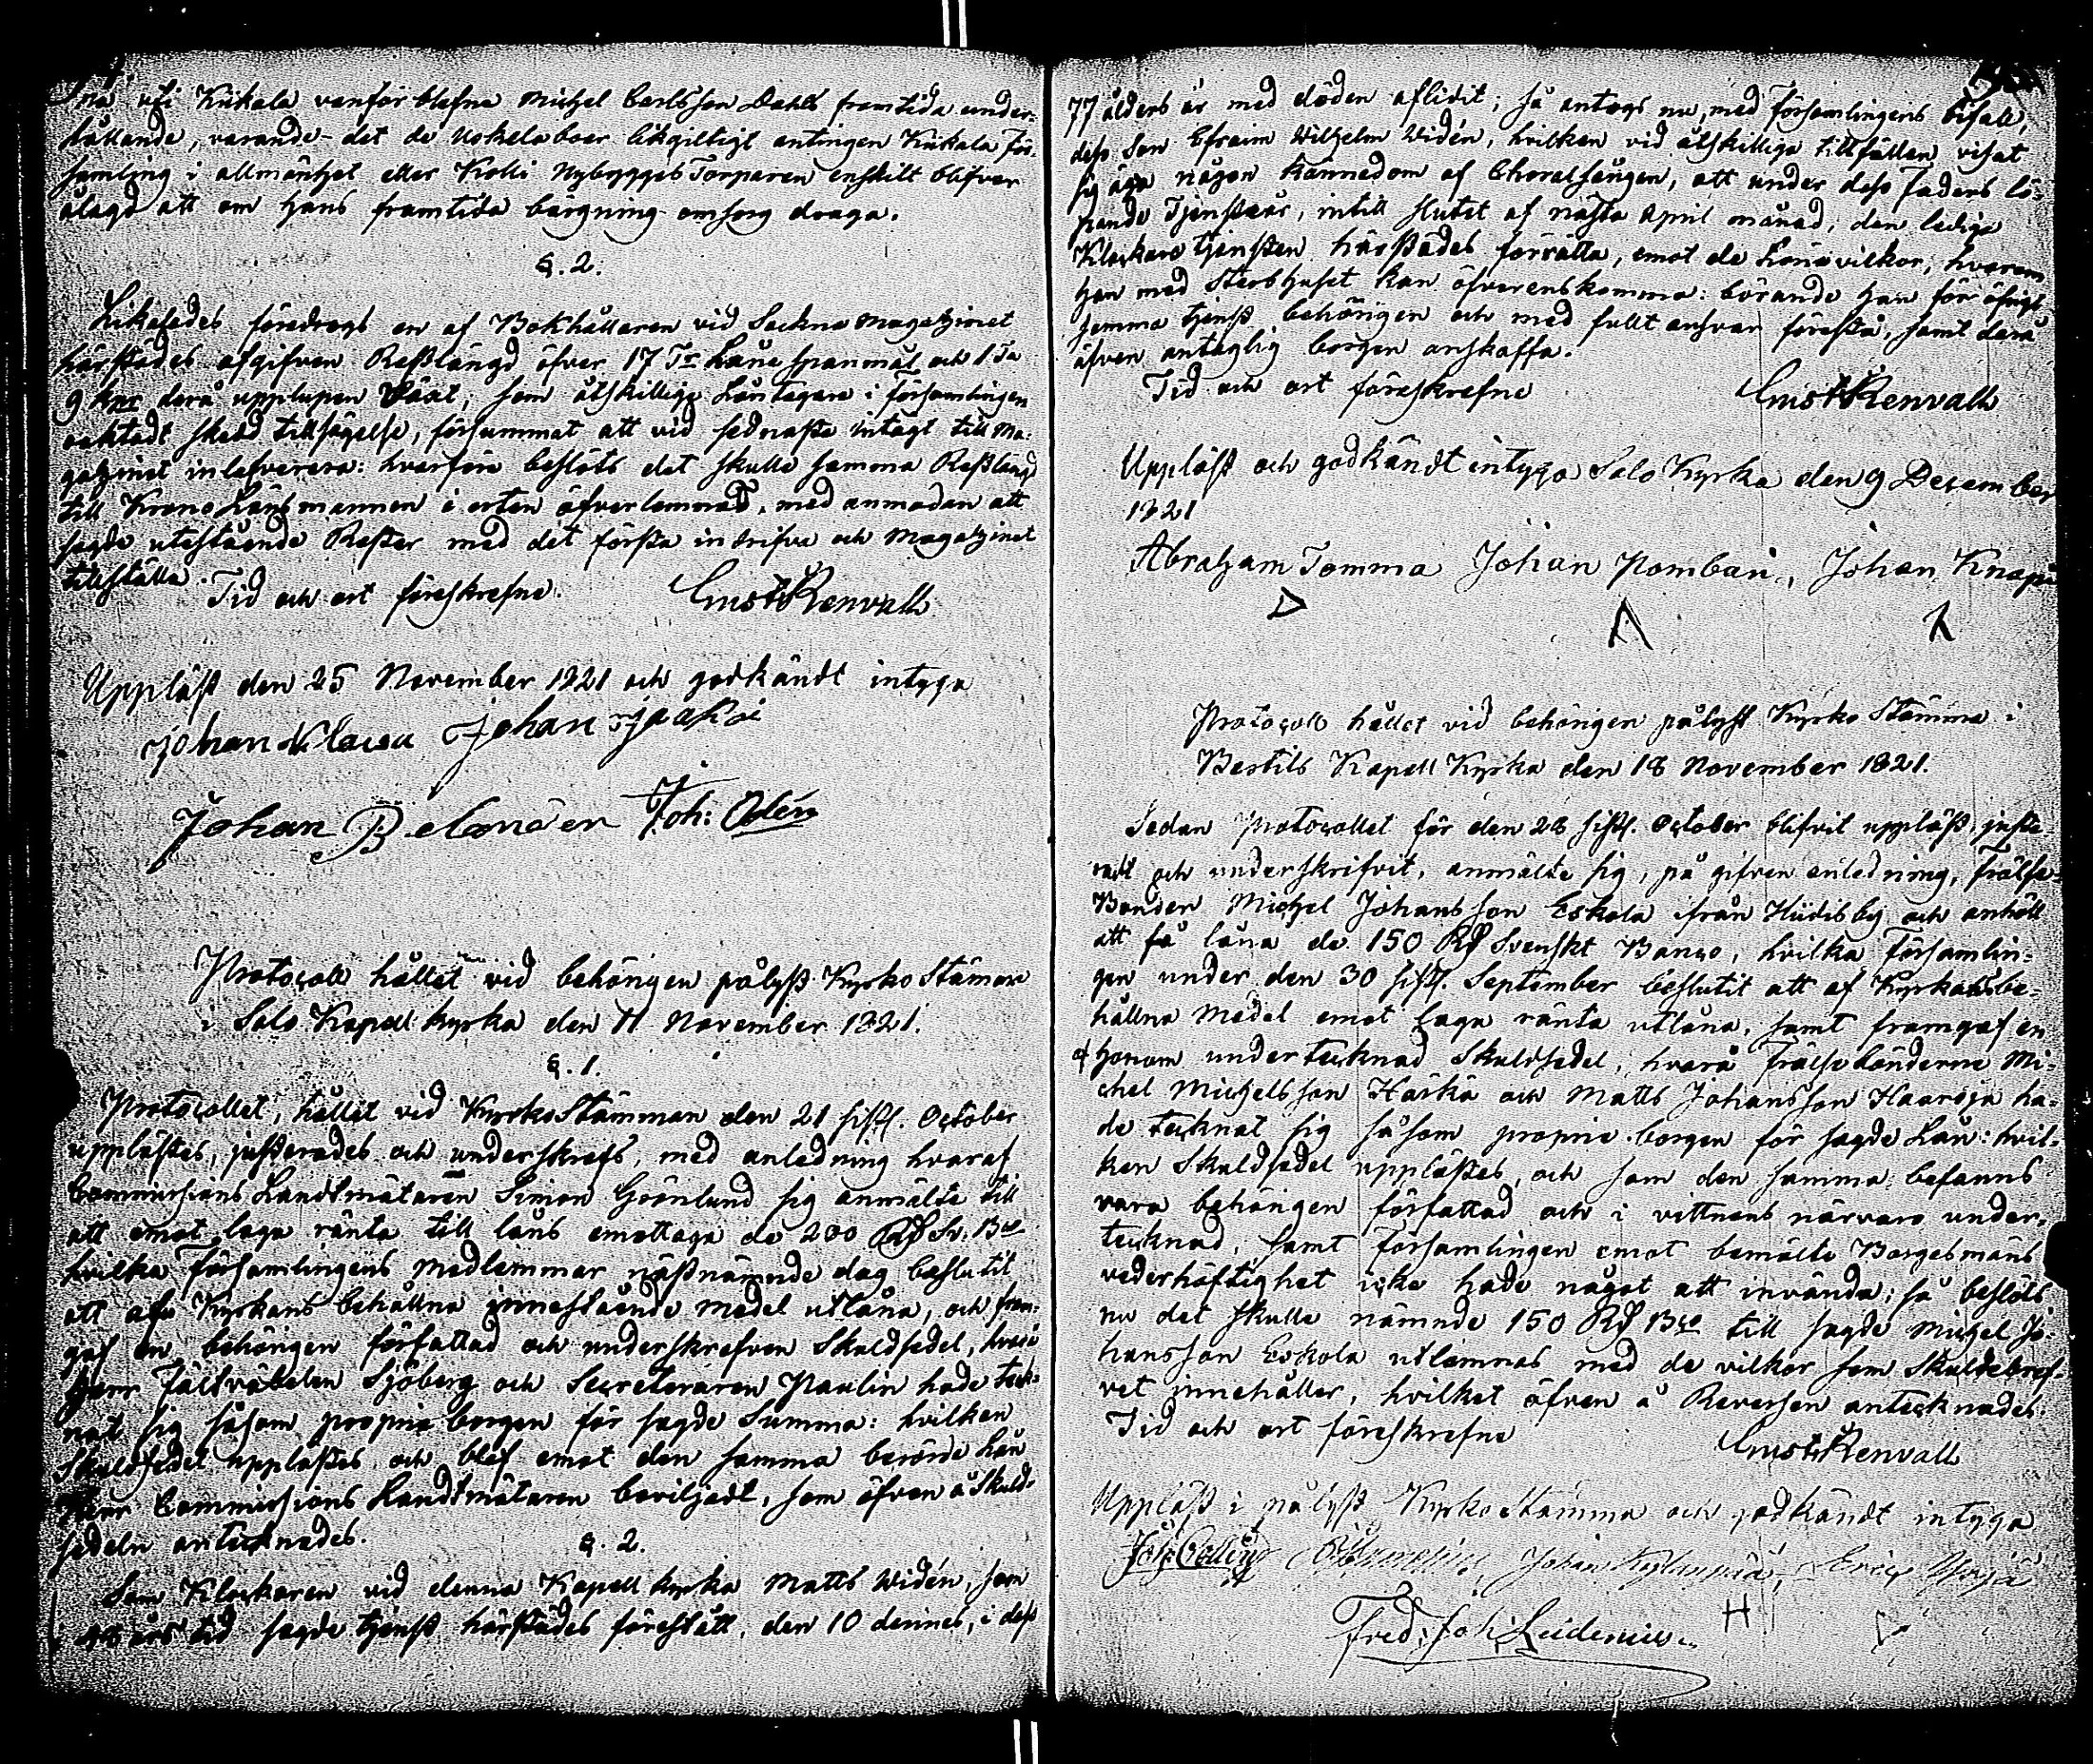 na uti Kiikala vanför blefne Michel Carlsson Dahls framtida under-
hållande, varande det de Uskelaboer likgiltigt antingen Kiikala För-
samling i allmänhet eller Kolli Nybygges Torparen enskilt blifver
ålagd att om hans framtida bärgning omsorg draga.
§. 2.
Likaledes föredrogs en af Bokhållaren vid Sockne Magatzinet
härstädes afgifven Restlängd öfver 17 Tr Låne spanmål och 1 Ta
9 kpr derå upplupen Växt, som åtskillige Låntagare i församlingen
oaktadt skedd tillsägelse, försummat att vid sednaste intagt till Ma-
gatzinet inlefverera: hvarföre beslöts det skulle samma Restlängd
till Krono Länsmannen i orten öfverlemnas, med anmodan att
sagde utestående Rester med det första indrifva och Magatzinet
tillställa. Tid och ort föreskrefne.
Gust Renvall
Uppläst den 25 November 1821 och godkändt intyga
Johan Johan Jaakoi
Johan Joh: Odén
Protocoll hållet vid behörigen pålyst Kyrko Stämma
i Salo Kapell kyrka den 11 November 1821.
§. 1.
Protocollet, hållet vid KyrkoStämman den 21 sistl. October
upplästes, justerades och underskrefs, med anledning hvaraf
Commissions Landtmätaren Simon Grönlund sig anmälte till
att emot laga ränta till låns emottaga de 200 Rd Sv. Bco
hvilka Församlingens medlemmar nästnämnde dag beslutit
att af Kyrkans behållna innestående medel utlåna, och fram-
gaf en behörigen författad och underskrefven Skuldsedel, hvarå
Herr Fältväbelen Sjöberg och Secreteraren Paulin hade teck-
nat sig såsom proprie borgen för sagde Summa: hvilken
Skuldsedel upplästes och blef emot den samma berörde Lån
Herr Commissions Landtmätaren beviljadt, som äfven å Skuld-
sedeln antecknades.
§. 2.
Som Klockaren vid denna Kapell kyrka Matts Widén, som
i års tid sagde tjenst härstädes förestått, den 10 dennes, i dess
77 ålders år med döden aflidit; så antogs nu, med Församlingens bifall,
dess Son Efraim Wilhelm Widén, hvilken vid åtskilliga tillfällen visat
sig äga någon kännedom af Choralsången, att under dess Faders lö-
pande Tjenstår, intill slutet af nästa April månad, den lediga
Klockare tjensten härstädes förrätta, emot de Lönevilkor, hvarom
han med Sterbhuset kan öfverenskomma: börande han för öfrigt
samma tjenst behörigen och med fullt ansvar förestå, samt derå
äfven antaglig borgen anskaffa.
Tid och ort föreskrefne
Gust Renvall
Uppläst och godkändt intyga Salo Kyrka den 9 December
1821
Abraham Tomma Johan Pombari, Johan Knapi
Protocoll hållet vid behörigen pålyst Kyrko Stämma i
Bertils Kapell Kyrka den 18 November 1821.
Sedan Protocollet för den 28 sistl. October blifvit uppläst, juste-
radt och underskrifvit, anmälte sig, på gifven anledning, Frälse-
Bonden Michel Johansson Eskola ifrån Hiidis by och anhöll
att få låna de 150 Rd Svenskt Banco, hvilka Församlin-
gen under den 30 sistl. September beslutit att af Kyrkans be-
hållna Medel emot laga ränta utlåna, samt framgaf en
af honom undertecknad Skuldsedel, hvarå Frälse bönderne Mi-
chel Michelsson Härkä och Matts Johansson Haaroja ha-
de tecknat sig såsom proprie borgen för sagde Lån: hvil-
ken Skuldsedel upplästes, och som den samma befanns
vara behörigen författad och i vittnens närvaro under-
tecknad, samt Församlingen emot bemälte Borgesmäns
vederhäftighet icke hade något att invända; så beslöts
nu det skulle nämnde 150 Rd Bco till sagde Michel Jo-
hansson Eskola utlemnas med de vilkor som Skuldebref-
vet innehåller, hvilket äfven å Reversen antecknades.
Tid och ort föreskrefne
Gust Renvall
Uppläst i pålyst Kyrko Stämma och godkändt intyga
Johan Eric
Fred: Joh: Leidenius